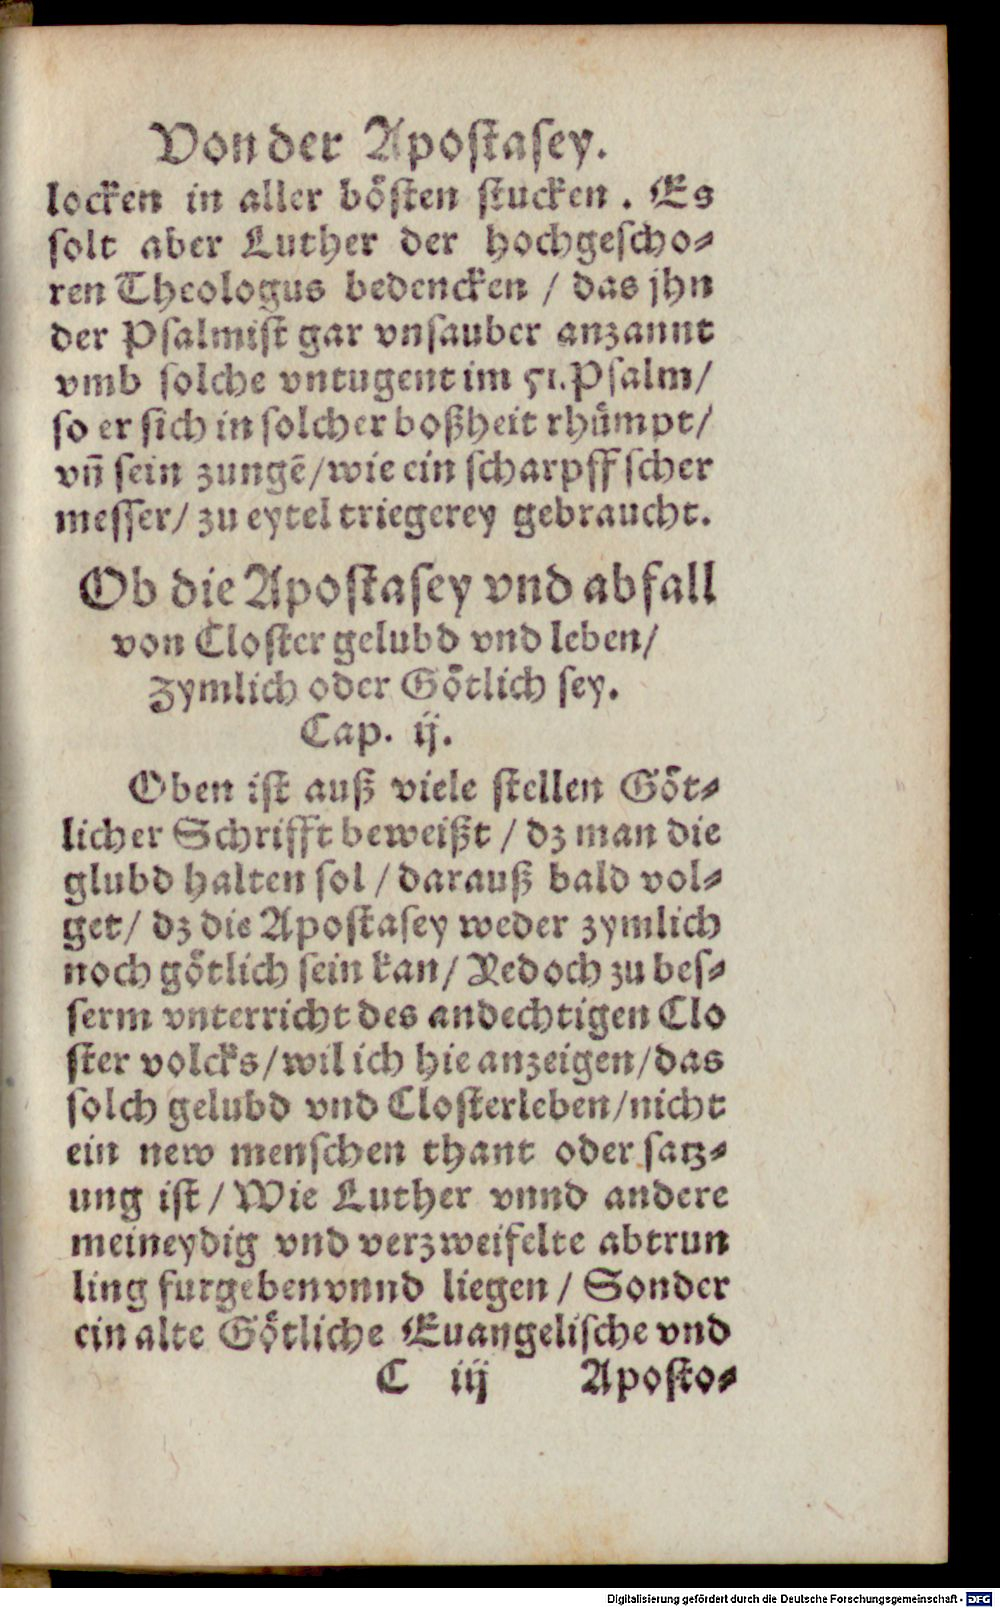 Von der Apostasey.
locken in aller bösten stucken . Es
solt aber Luther der hochgescho⸗
ren Theologus bedencken / das jhn
der Psalmist gar vnsauber anzannt
vmb solche vntugent im 51. Psalm/
so er sich in solcher boßheit rhümpt/
vñ sein zungẽ/wie ein scharpff scher
messer/ zu eytel triegerey gebraucht.
Ob die Apostasey vnd abfall
von Closter gelubd vnd leben/
zymlich oder Götlich sey.
Cap. ij.
Oben ist auß viele stellen Göt⸗
licher Schrifft beweißt / dz man die
glubd halten sol / darauß bald vol⸗
get/ dz die Apostasey weder zymlich
noch götlich sein kan/ Redoch zu bes⸗
serm vnterricht des andechtigen Clo
ster volcks/wil ich hie anzeigen/das
solch gelubd vnd Closterleben/nicht
ein new menschen thant oder satz⸗
ung ist / Wie Luther vnnd andere
meineydig vnd verzweifelte abtrun
ling furgeben vnnd liegen / Sonder
ein alte Götliche Euangelische vnd
C iij Aposto⸗
Digitalisierung gefördert durch die Deutsche Forschungsgemeinschaft - DFG